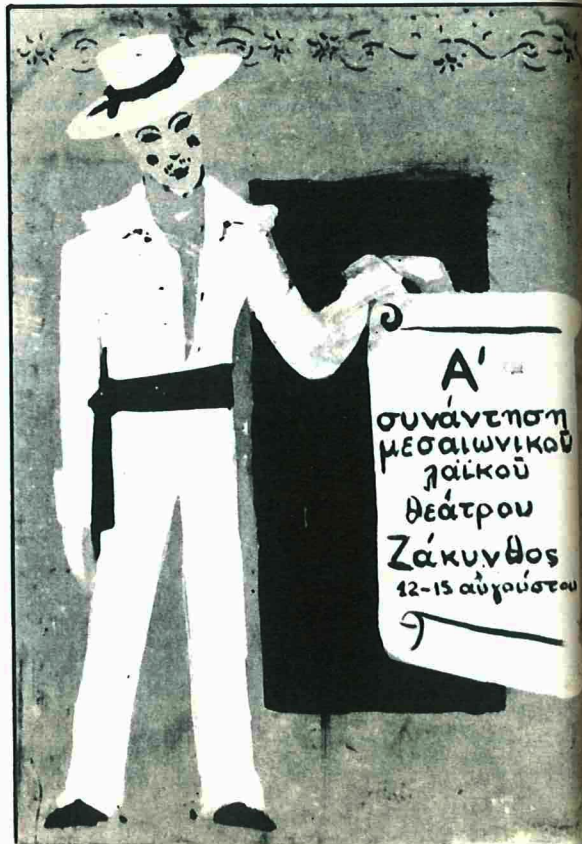 Α'
συνάντηση
μεσαιωνικοῦ
λαϊκοῦ
θεάτρου
Ζάκυνθος
12-15 αὐγούστου